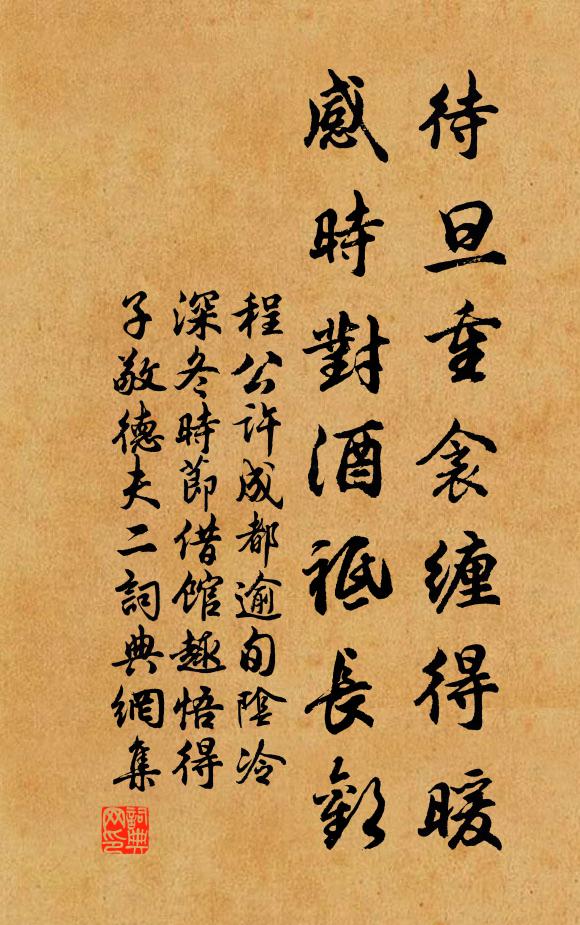 待旦重衾纏得暖
感時對酒祗長歎
程公許成都逾旬陰冷
深冬時節借館趣悟得
子敬德夫二詞典網集
詞典
网印